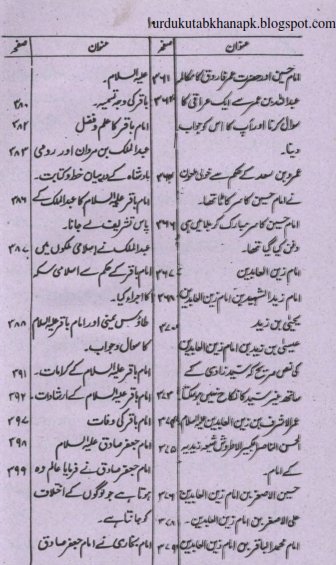 urdukutabkhanapk.blogspot.com
عنوان صفحہ
امام حسین اور حضرت عمر فاروق کا مکالمہ ۳۶۱
عبداللہ بن عمر سے ایک عراقی کا ۳۶۴
سوال کرنا اور آپ کا اس کو جواب
دینا۔
عمرو بن سعد کے حکم سے خولی
نے امام حسین کا سر کاٹا تھا۔
امام حسین کا سر مبارک کربلا میں ہی ۳۶۶
دفن کیا گیا تھا۔
امام زین العابدین ۳۶۷
امام زید الشہید بن امام زین العابدین ۳۶۸
یحییٰ بن زید
عیسیٰ بن زید بن امام زین العابدین
کی نص صریح کہ سید زادی کے
ساتھ غیر سید کا نکاح نہیں ہو سکتا ۳۷۳
عمر الاشرف بن زین العابدین علیہ السلام ۳۷۴
الحسن الناصر الکبیر الاطروش شیعہ زیدیہ ۳۷۵
کے امام۔
حسین الاصغر بن امام زین العابدین ۳۷۶
علی الاصغر بن امام زین العابدین۔ ۳۷۸
امام محمد الباقر بن امام زین العابدین ۳۷۹
عنوان صفحہ
علیہ السلام۔
باقر کی وجہ تسمیہ۔ ۳۸۰
امام باقر کا علم و فضل ۳۸۲
عبدالملک بن مروان اور رومی ۳۸۳
بادشاہ کے درمیان خط و کتابت۔
امام باقر علیہ السلام کا عبدالملک کے ۳۸۶
پاس تشریف لے جانا۔
عبدالملک نے اسلامی ملکوں میں ۳۸۷
امام باقر کے حکم سے اسلامی سکہ
کا اجراء کیا۔
طاؤس یمنی اور امام باقر علیہ السلام ۳۸۸
کا سوال و جواب۔
امام باقر علیہ السلام کے کرامات۔ ۳۹۱
امام باقر علیہ السلام کے ارشادات۔ ۳۹۲
امام باقر کی وفات ۳۹۷
امام جعفر صادق علیہ السلام ۳۹۸
امام جعفر صادق نے فرمایا عالم وہ ۳۹۹
ہوتا ہے جو لوگوں کے اختلاف
کو جانتا ہے۔
امام بخاری نے امام جعفر صادق